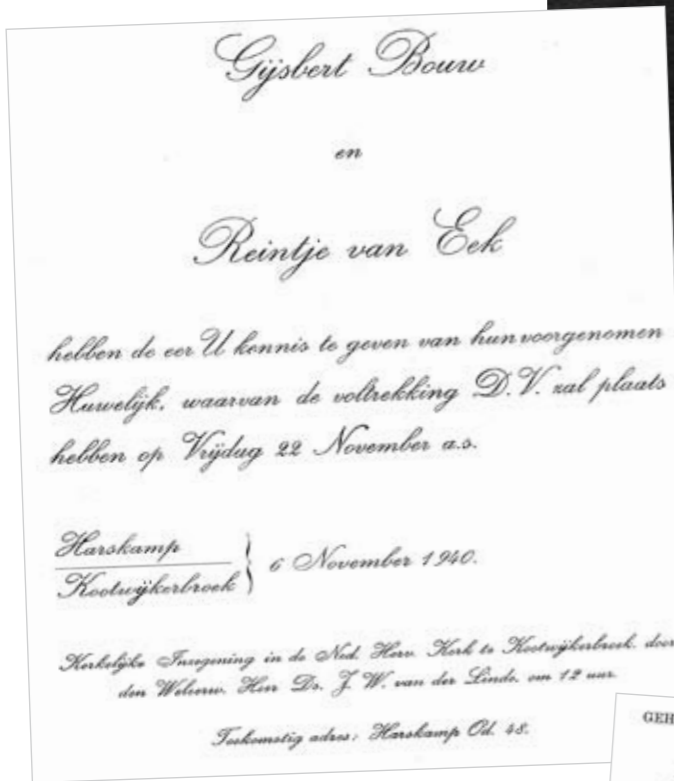 Gijsbert Bouw
en
Reintje van Eek
hebben de eer U kennis te geven van hun voorgenomen
Huwelijk, waarvan de voltrekking D.V. zal plaats
hebben op Vrijdag 22 November a.s.
Harskamp
Kootwijkerbroek } 6 November 1940.
Kerkelijke Inzegening in de Ned. Herv. Kerk te Kootwijkerbroek, door
den Weleerw. Heer Ds. J. W. van der Linde, om 12 uur.
Toekomstig adres: Harskamp Od. 48.
GEH